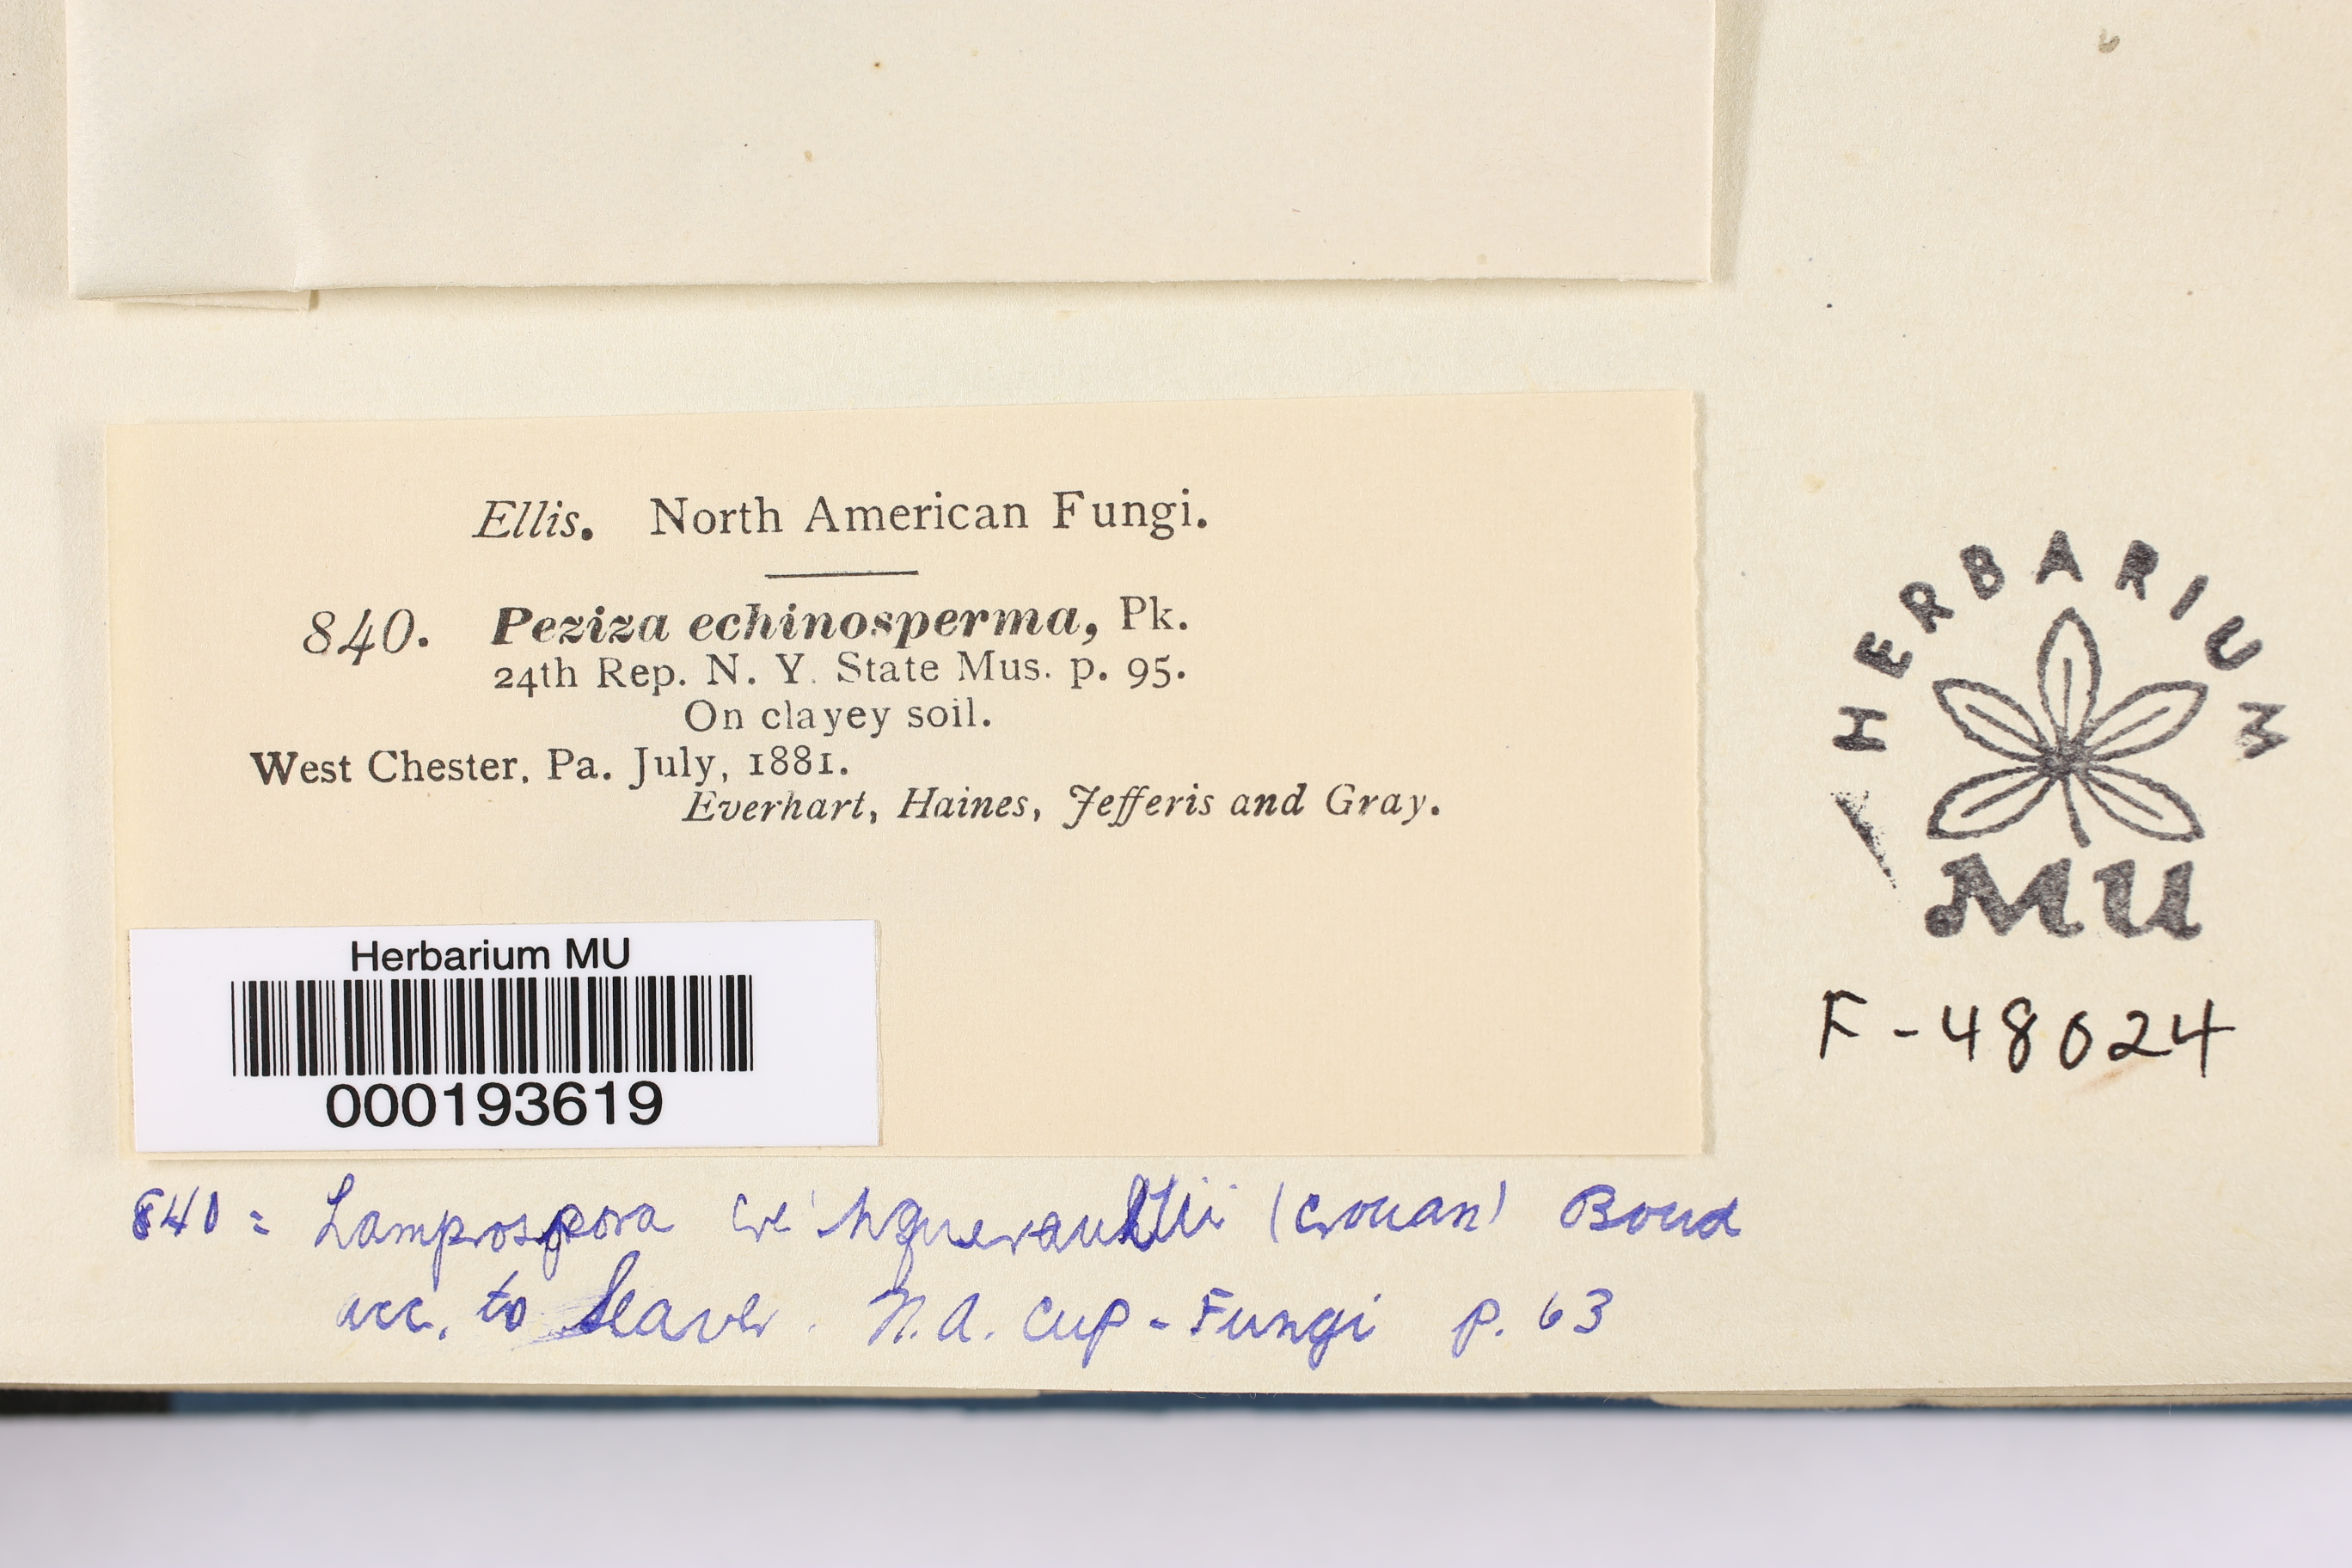 Ellis. North American Fungi.
840. Peziza echinosperma, Pk.
24th Rep. N. Y. State Mus. p. 95.
On clayey soil.
West Chester, Pa. July, 1881.
Everhart, Haines, Jefferis and Gray.
Herbarium MU
000193619
HERBARIUM
MU
F-48024
840 = Lamprospora (Crouan) Boud
acc. to Seaver. N.A. Cup-Fungi p. 63